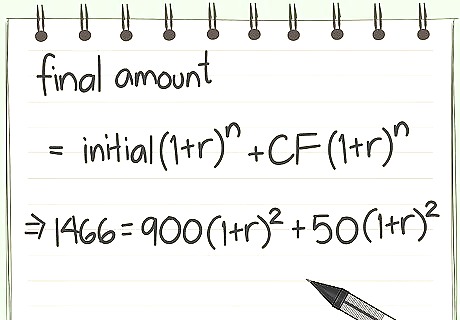 final amount
= initial(1+r)ⁿ + CF(1+r)ⁿ
⇒ 1466 = 900(1+r)² + 50(1+r)²